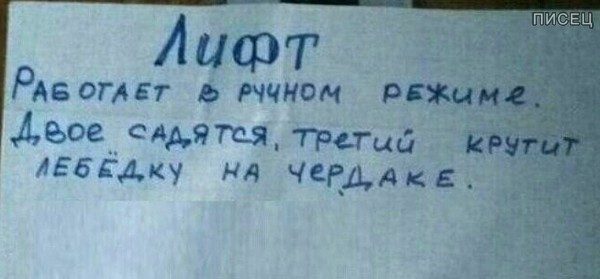 ПИСЕЦ
Лифт
РАБОТАЕТ В РУЧНОМ РЕЖИМЕ.
ДВОЕ САДЯТСЯ, ТРЕТИЙ КРУТИТ
ЛЕБЁДКУ НА ЧЕРДАКЕ.